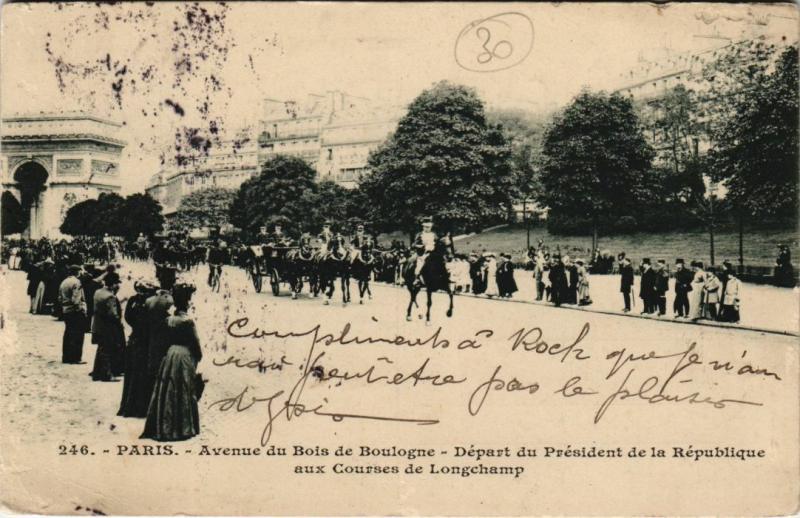 30
Compliments à Rock que je n'au
rai peut être pas le plaisir
246. - PARIS. - Avenue du Bois de Boulogne - Départ du Président de la République
aux Courses de Longchamp